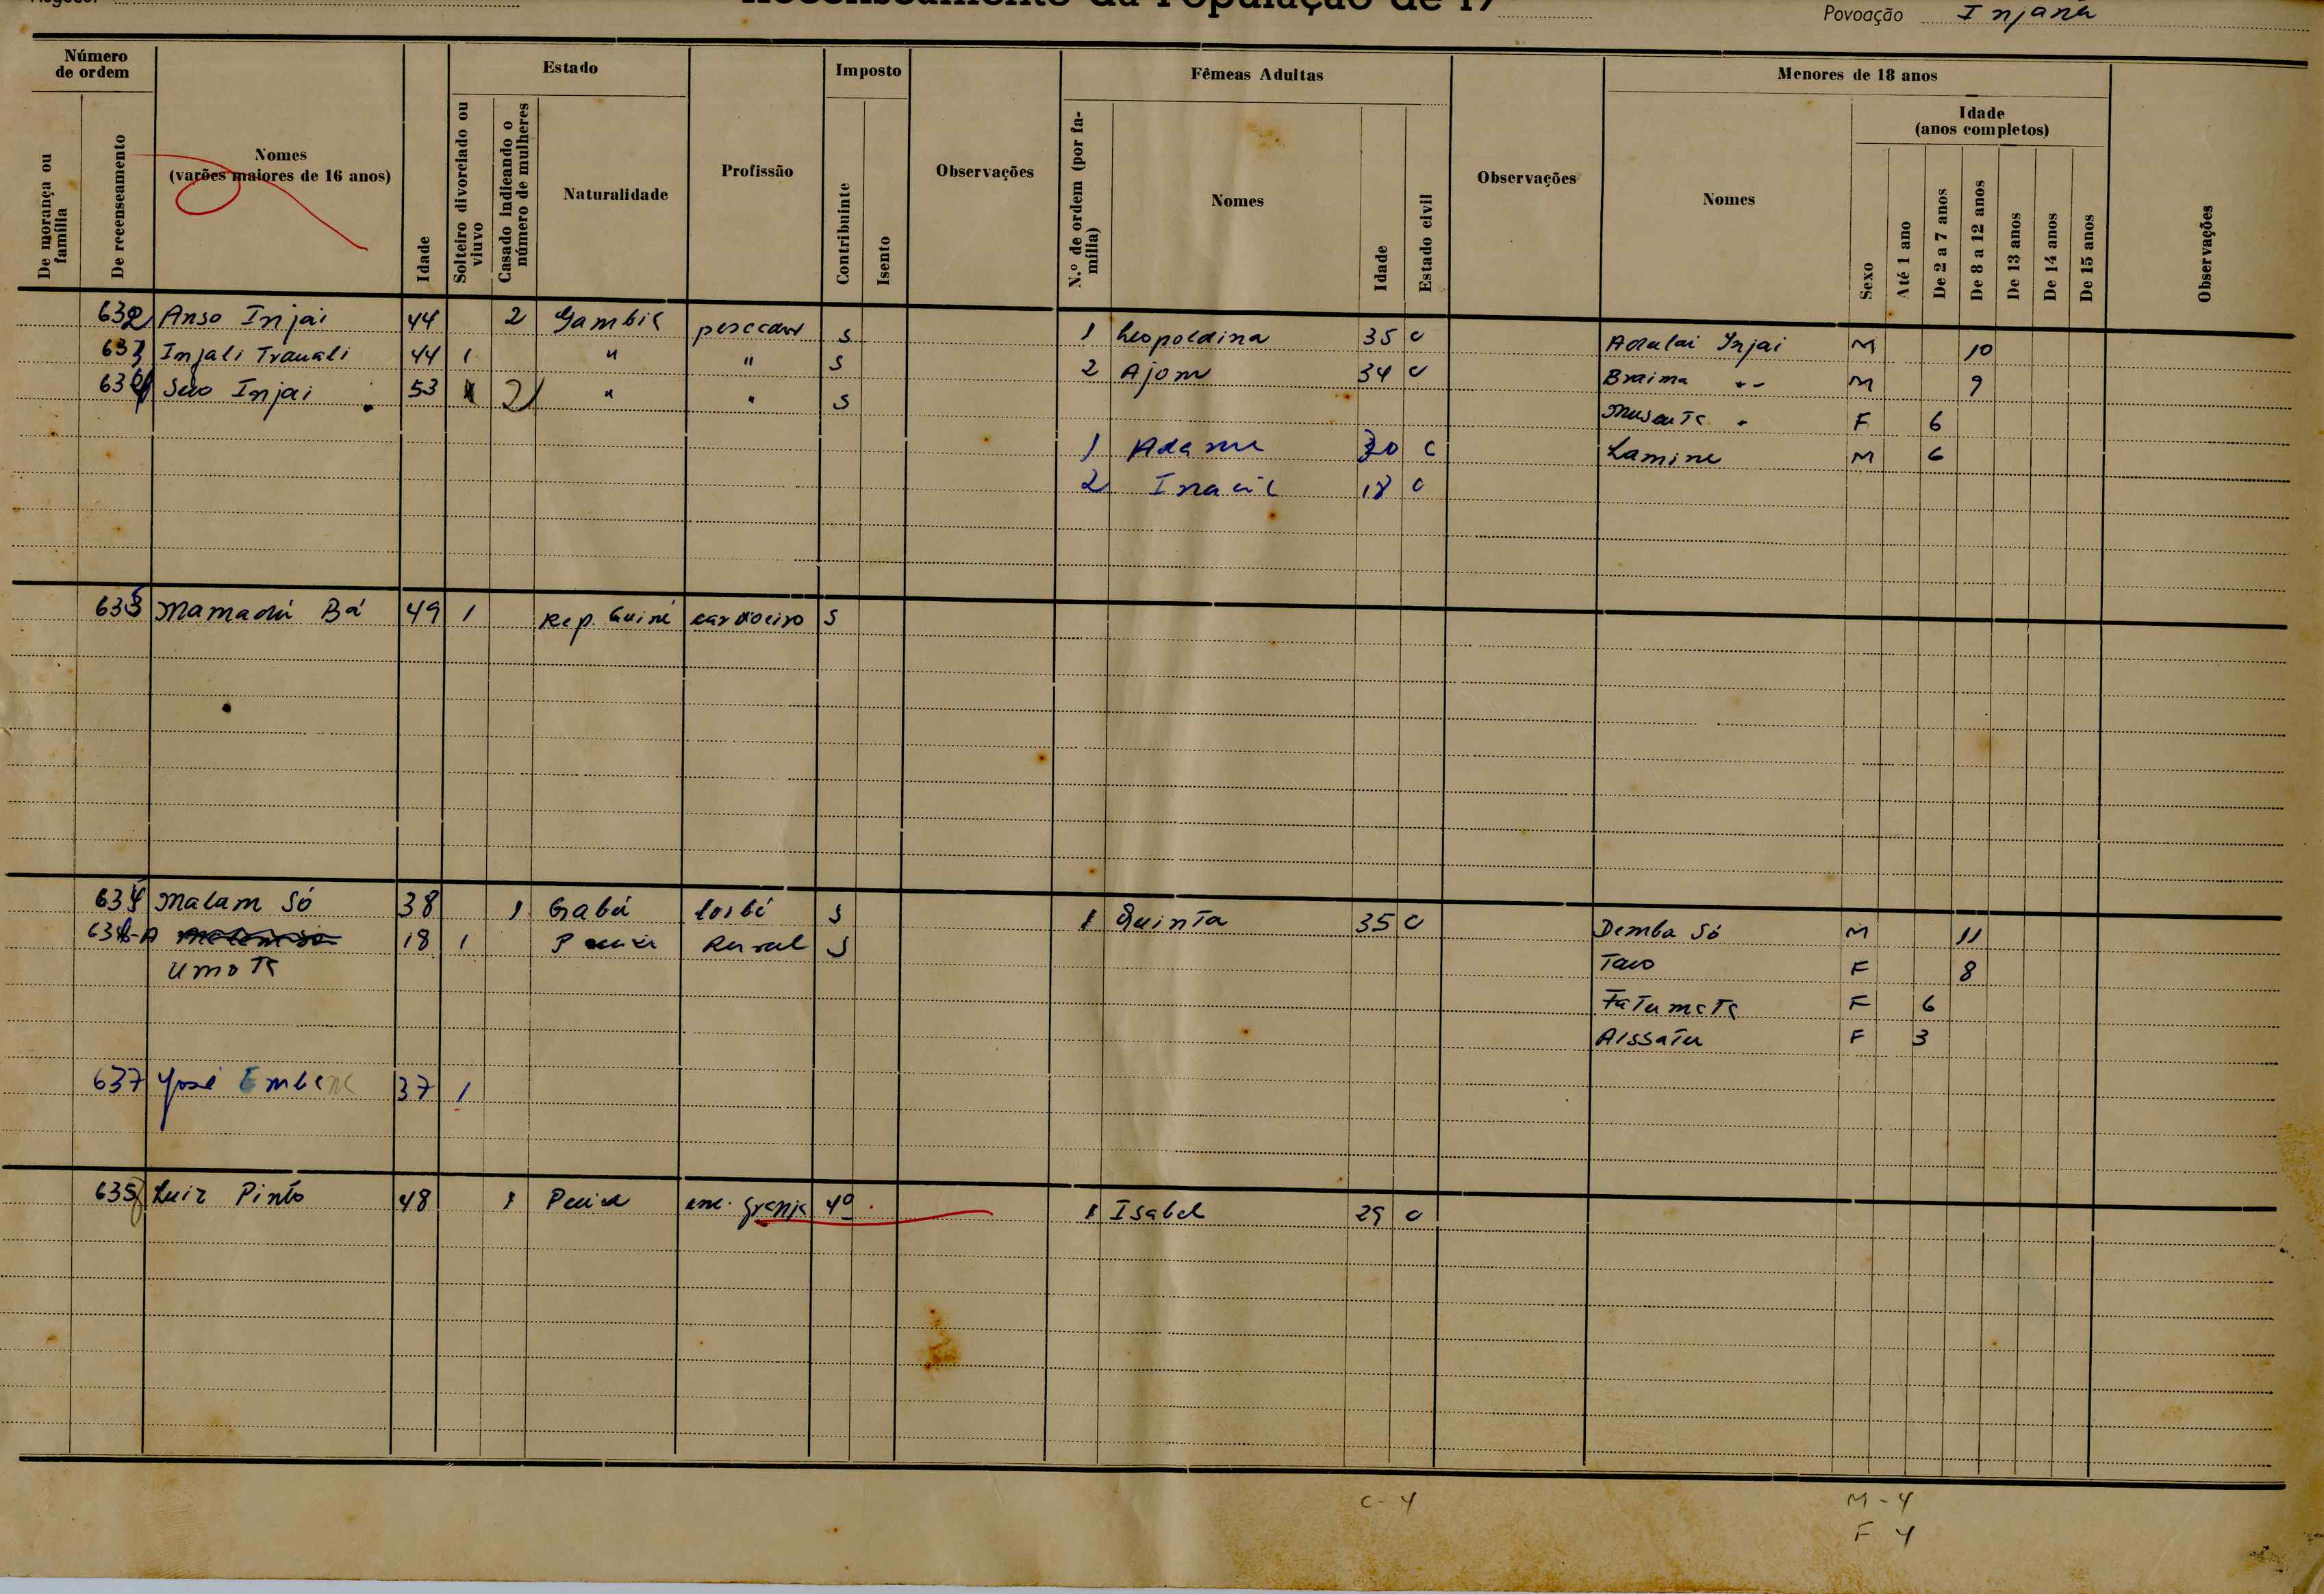 Recenseamento da População de 19
Povoação Injana
Número de ordem
Estado
Imposto
Fêmeas Adultas
Menores de 18 anos
De morança ou família
De recenseamento
Nomes (varões maiores de 16 anos)
Idade
Solteiro divorciado ou viuvo
Casado indicando o número de mulheres
Naturalidade
Profissão
Contribuinte
Isento
Observações
N.º de ordem (por família)
Nomes
Idade
Estado civil
Observações
Nomes
Sexo
Idade (anos completos)
Até 1 ano
De 2 a 7 anos
De 8 a 12 anos
De 13 anos
De 14 anos
De 15 anos
Observações
632 Anso Injai 44 2 Gambia pescador S 1 Leopoldina 35 C Adulai Injai M 10
633 Injali Trauali 44 1 " " S 2 Ajom 34 C Braima " M 9
634 Injai 53 2 " " S F 6
1 Adama 30 C Lamine M 6
2 18 C
635 Mamadú Bá 49 1 Rep. Guiné S
Malam Só 38 1 Gabú S 1 Quinta 35 C Demba Só M 11
18 1 Rural S F 8
Umo Fatumata F 6
Aissatu F 3
637 José 37 1
Luiz Pinto 48 1 enc. granja 4º 1 Isabel 29 C
C - 4 M - 4
F 4